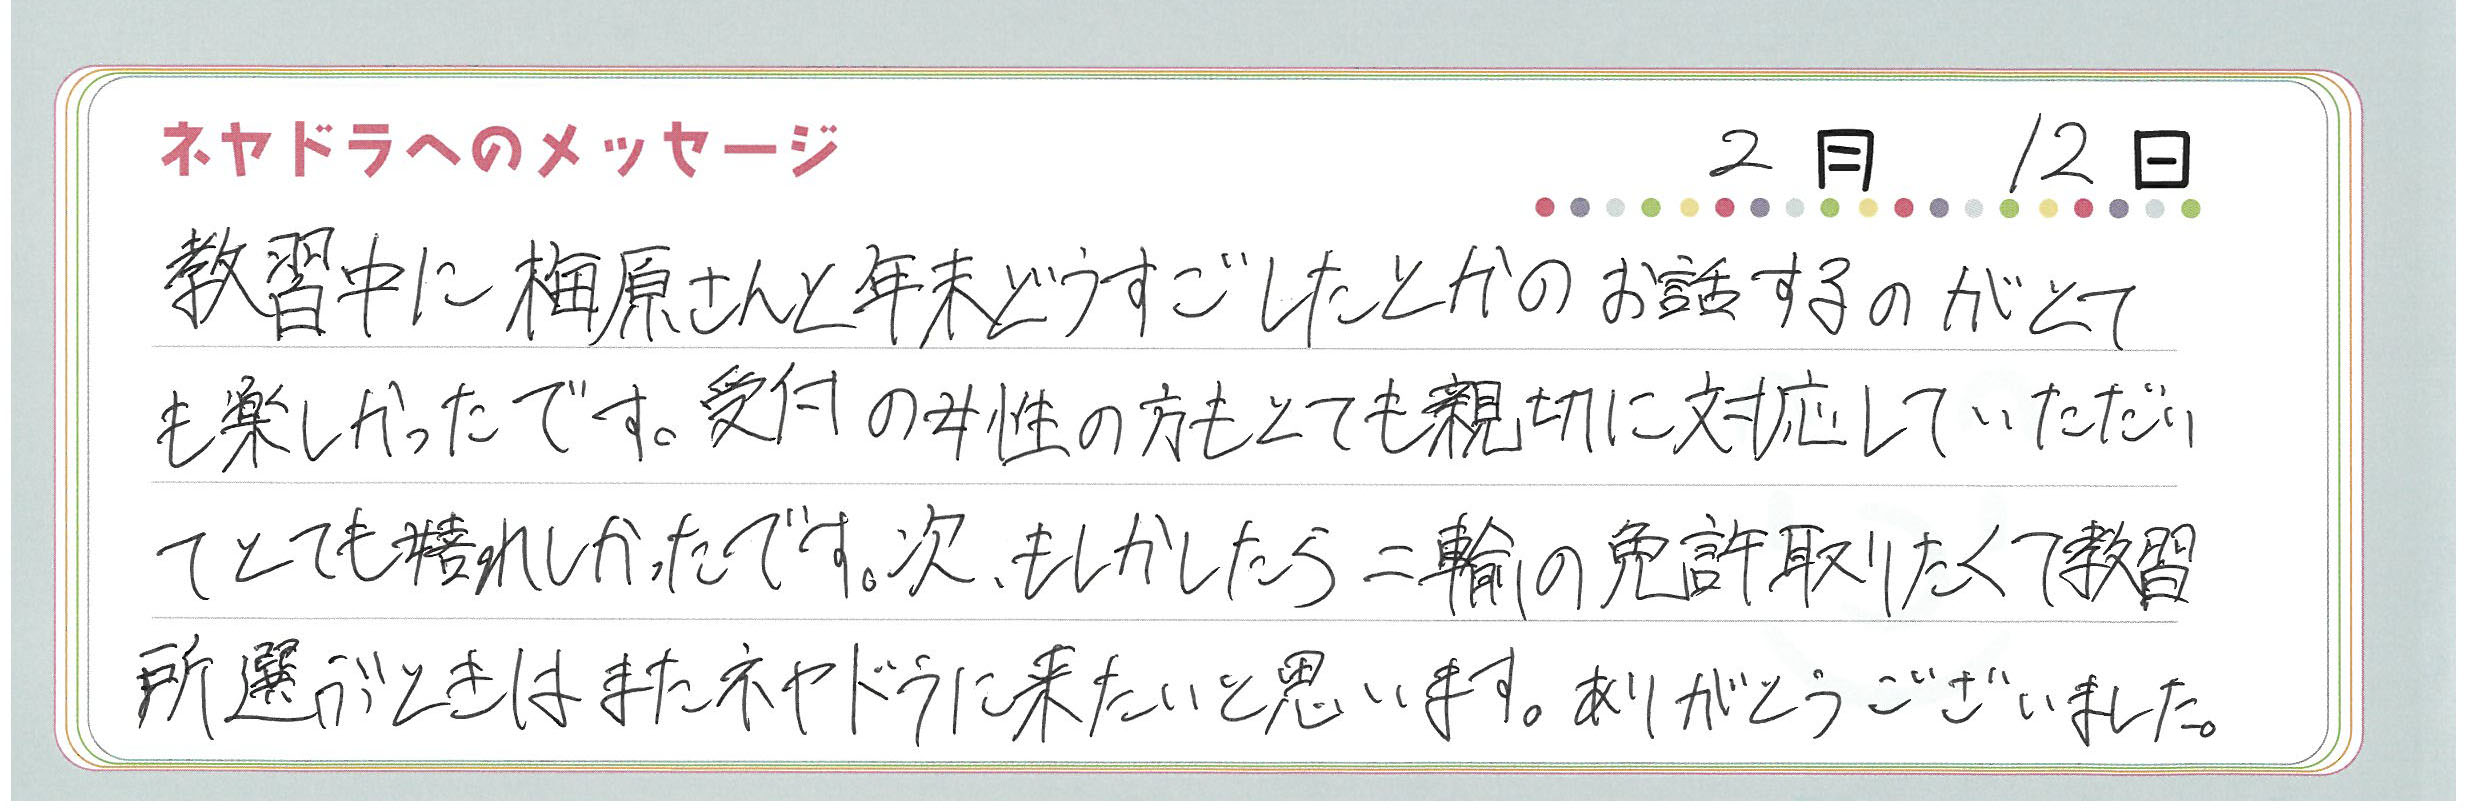 ネヤドラへのメッセージ
2月 12日
教習中に梅原さんと年末どうすごしたとかのお話するのがとて
も楽しかったです。受付の女性の方もとても親切に対応していただい
てとても嬉れしかったです。次、もしかしたら二輪の免許取りたくて教習
所選ぶときはまたネヤドラに来たいと思います。ありがとうございました。